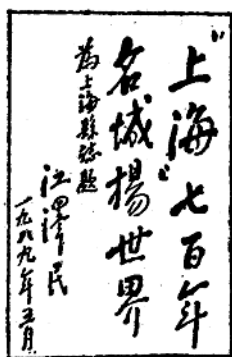 “上海七百年
名城揚世界”
為上海縣誌題
江澤民
一九八九年五月